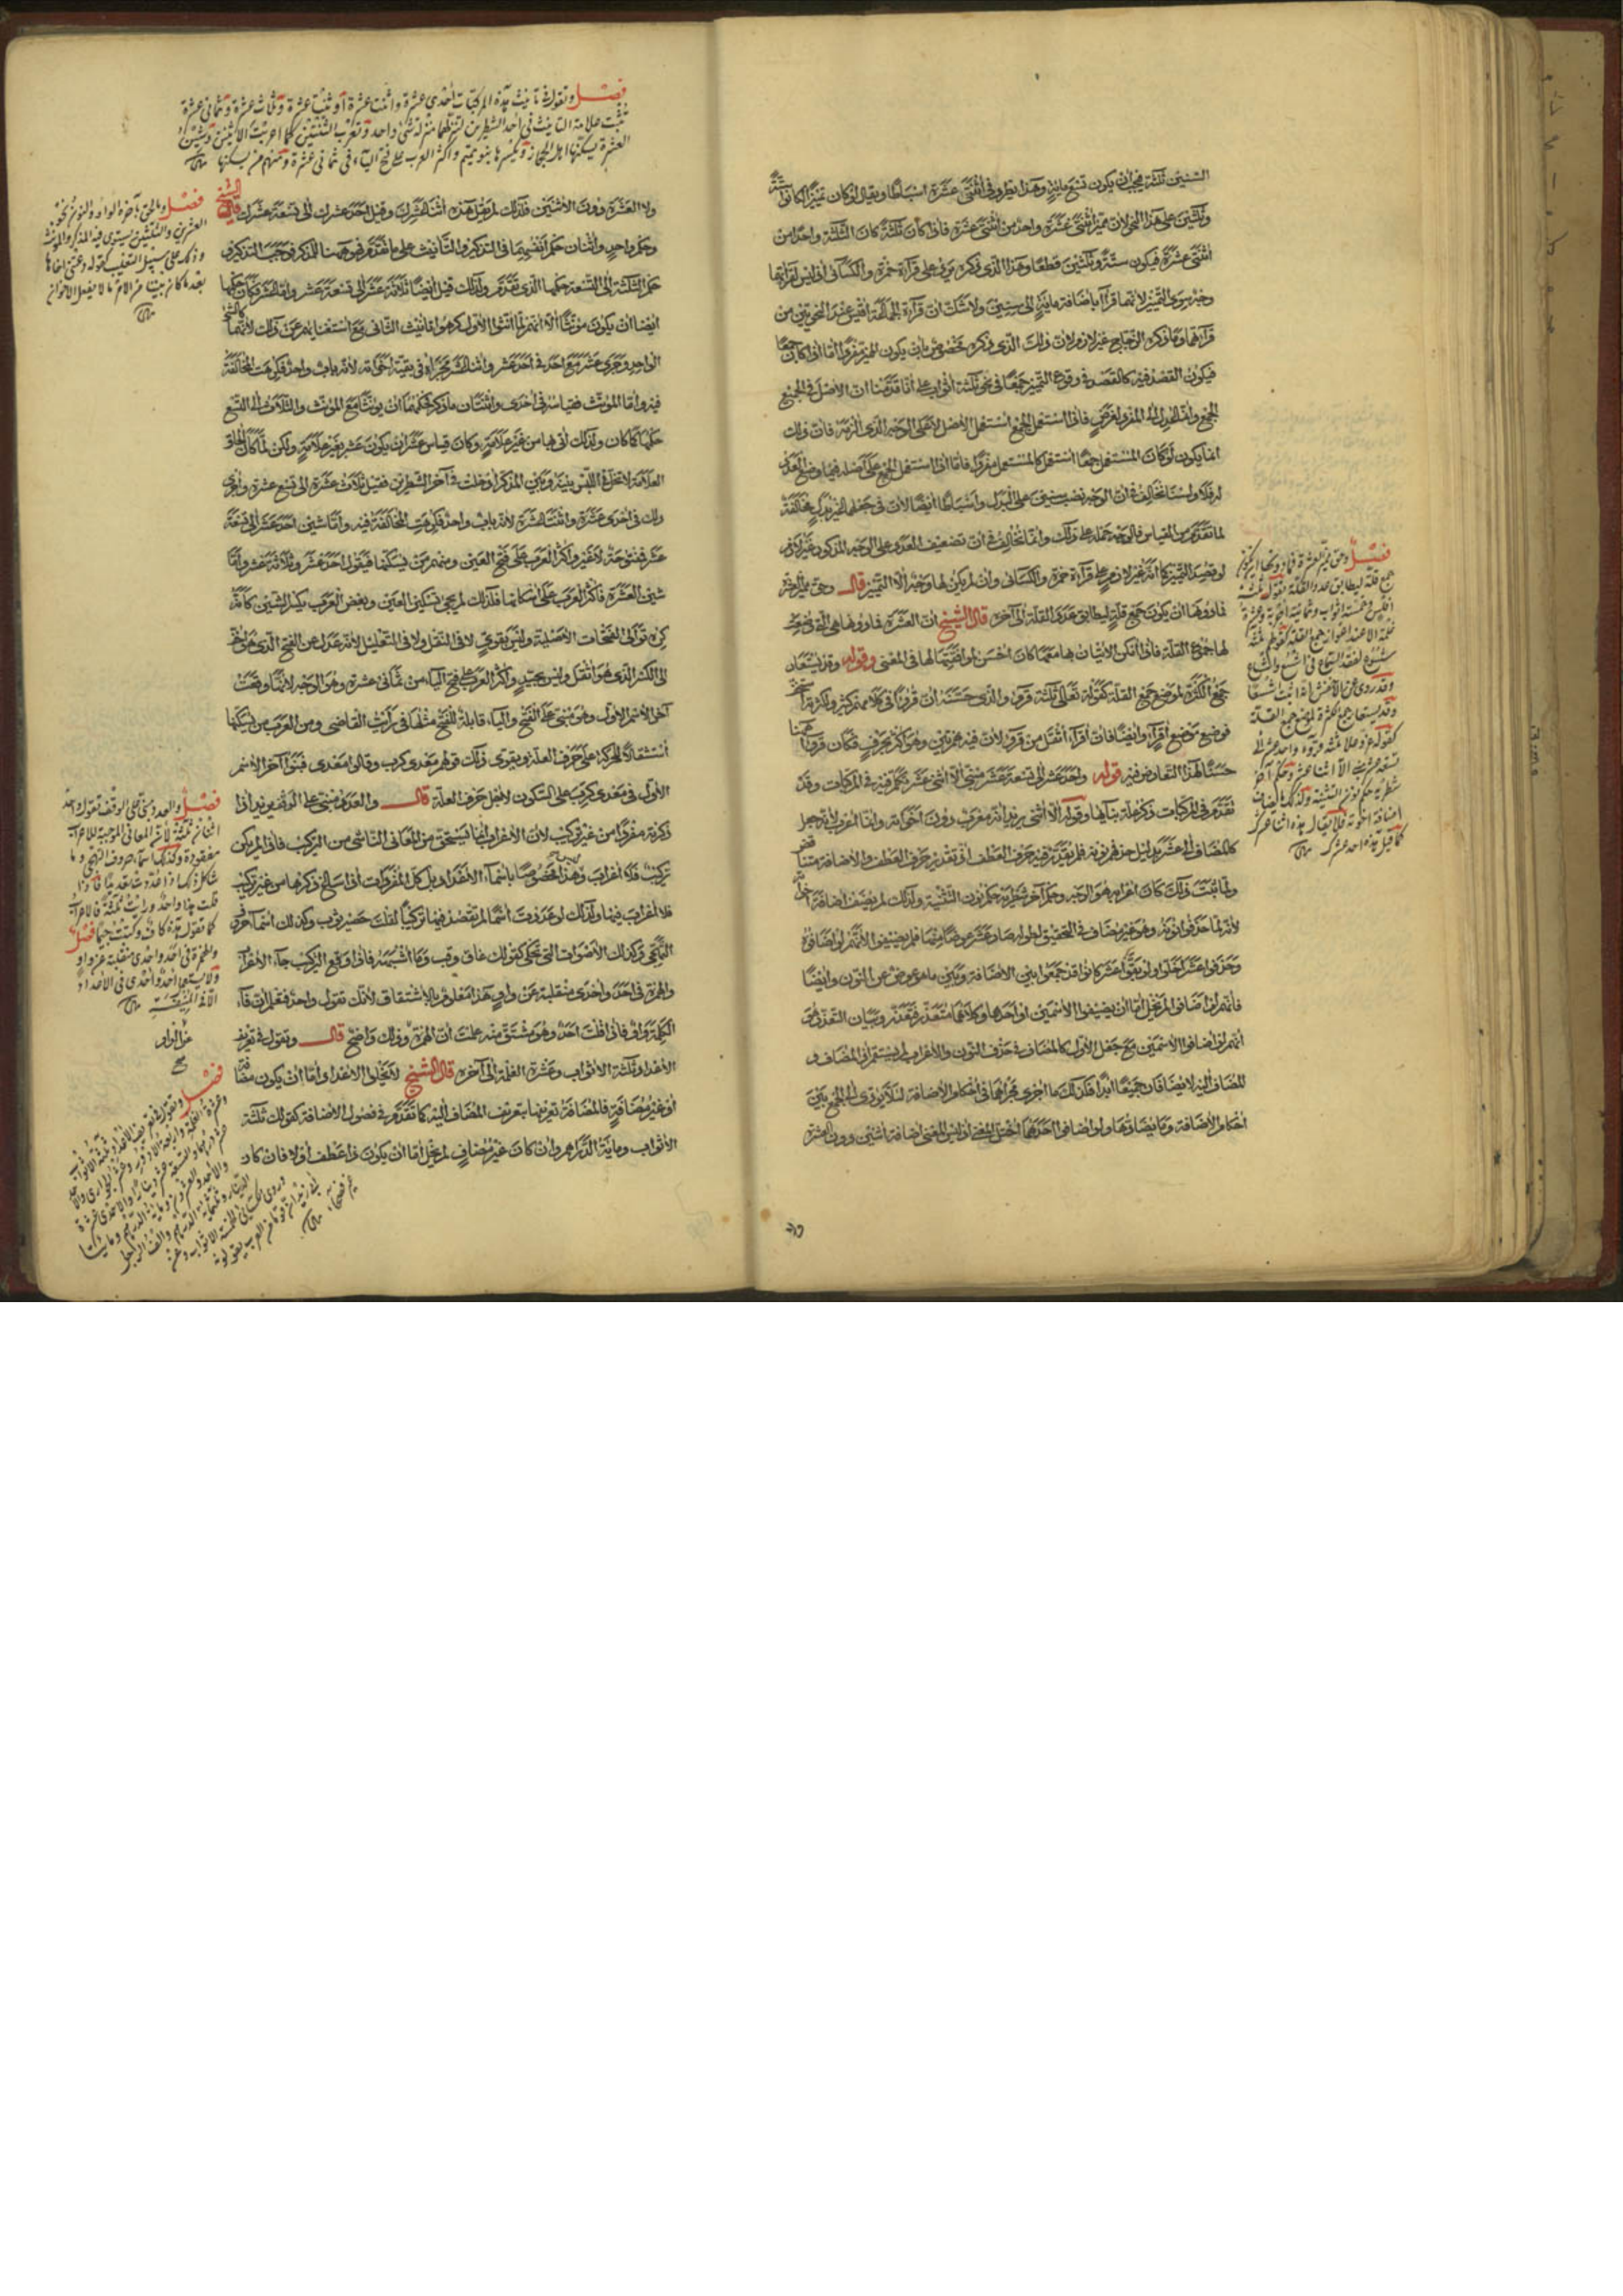 السنين ثلثة فيجب ان يكون تسع مائة وهذا يطرد في اثنتي عشرة اسباطا ويقال لو كان تميزا لكانوا ستة
وثلثين على هذا النحو لان مميز اثنتي عشرة واحد من اثنتي عشرة فاذا كان ثلثة كان الثلثة واحدا من
اثنتي عشرة فيكون ستة وثلثين قطعا وهذا الذي ذكره يرد على قراءة حمزة والكسائي اذ ليس لقراءتهما
وجه سوى التميز لانهما قرآ باضافة مائة الى سنين ولا شك ان قراءة الجماعة اقيس عند النحويين من
قراءتهما وما ذكره الزجاج غير لازم لان ذلك الذي ذكره مخصوص بان يكون المميز مفردا اما اذا كان جمعا
فيكون القصد فيه كالقصد في وقوع التميز جمعا في نحو ثلثة اثواب على انا قدمنا ان الاصل في الجميع
الجمع وانما عدل الى المفرد لغرض فاذا استعمل الجمع استعمل الاصل لا على الوجه الذي الزمه فان ذلك
انما يكون لو كان المستعمل جمعا استعمل كالمستعمل مفردا فاما اذا استعمل الجمع على اصله فيما وضع العدد
له فلا ولسنا نخالف في ان الوجه نصب سنين على البدل واسباطا ايضا لان في جعلها تميزا مخالفة
لما تقدم من القياس فالوجه حمله على ذلك وانما نخالف في ان تضعيف العدد على الوجه المذكور غير لازم
لو قصد التميز كما انه غير لازم على قراءة حمزة والكسائي وان لم يكن لها وجه الا التميز قال وحق مميز العشرة
فما دونها ان يكون جمع قلة ليطابق عدد القلة الى آخره قال الشيخ لان العشرة فما دونها هي التي وضعت
لها جموع القلة فاذا امكن الاتيان بها معها كان احسن لموافقتها لها في المعنى وقوله وقد يستعار
جمع الكثرة لموضع جمع القلة كقوله تعالى ثلثة قروء والذي حسنه ان قروءا في كلامهم كثر واكثرية استعماله
فوضع موضع اقراء وايضا فان اقراء اثقل من قروء لان فيه همزتين وهو اكثر بحرف فكان قروء ههنا
حسنا لهذا التعارض فيه قوله واحد عشر الى تسعة عشر مبني الا اثني عشر حكم فيه في المركبات وقد
تقدم في المركبات ذكر علة بنائها وقوله الا اثني يريد انه معرب دون اخواته وانما اعرب لانه جعل
كالمضاف الى عشر بدليل حذفهم نونه فلم يقدر فيه حرف العطف اذ تقدير حرف العطف والاضافة متناقض
ولما ثبت ذلك كان اعرابه هو الوجه وحكم آخر شطريه حكم نون التثنية ولذلك لم يضف اضافة اخواته
لانه لما حذفوا نونه وهو غير مضاف في التحقيق لطوله صار عشر عوضا منها فلم يضيفوا لانهم لو اضافوه
وحذفوا عشر اخلوا ولو بقوا عشر كانوا قد جمعوا بين الاضافة وبين ما هو عوض عن النون وايضا
فانهم لو اضافوا لم يخل اما ان يضيفوا الاسمين او احدهما وكلاهما متعذر فتعذر وبيان التعذر هو
انهم لو اضافوا الاسمين مع جعل الاول كالمضاف في حذف النون والاعراب لم يستقم اذ المضاف و
المضاف اليه لا يضافان جميعا ابدا فكذلك ما اجرى مجراهما في احكام الاضافة لئلا يؤدي الى الجمع بين
احكام الاضافة وما يضادها ولو اضافوا احدهما اختل المعنى اذ ليس المعنى اضافة اثنين دون العشرة
فصل وحق مميز العشرة فما دونها ان يكون
جمع قلة ليطابق عدد القلة تقول ثلثة
افلس وخمسة اثواب وثمانية اجربة وعشرة
غلمة الا عند اعواز جمع القلة كقولهم ثلثة
شسوع لفقد السماع في اشسع واشساع
وقد روى عن الاخفش انه اثبت اشسعا
وقد يستعار جمع الكثرة لموضع جمع القلة
كقوله عز وعلا ثلثة قروء واحد عشر الى
تسعة عشر مبني الا اثنا عشر وحكم آخر
شطريه حكم نون التثنية ولذلك لا يضاف
اضافة اخوته فلا يقال هذه اثنا عشرك
كما قيل هذه احد عشرك
فصل وتقول في تأنيث هذه المركبات احدى عشرة واثنتا عشرة او ثنتا عشرة وثلاث عشرة وثماني عشرة
تثبت علامة التأنيث في احد الشطرين لتنزلهما منزلة شئ واحد وتعرب الثنتين كما اعربت الاثنين وشين
العشرة يسكنها اهل الحجاز ويكسرها بنو تميم واكثر العرب على فتح الياء في ثماني عشرة ومنهم من يسكنها
فصل وما لحق بآخره الواو والنون نحو
العشرين والثلثين يستوي فيه المذكر والمؤنث
وذلك على سبيل التغليب كقوله دعتني اخاها
بعد ما كان بيننا من الامر ما لا يفعل الاخوان
ولا العشرة دون الاثنين فلذلك لم يقل هذه اثنا عشرك وقيل احد عشرك الى تسعة عشرك قال الشيخ
وحكم واحد واثنان حكم انفسهما في التذكير والتأنيث على ما تقدم فهو ههنا للمذكر فوجب التذكير و
حكم الثلثة الى التسعة حكمها الذي تقدم ولذلك قيل ايضا ثلاثة عشر الى تسعة عشر واما عشر فكان حكمها
ايضا ان يكون مؤنثا الا انهم لما انثوا الاول كرهوا تأنيث الثاني مع استغنائهم عن ذلك لانهما كالشئ
الواحد وجرى عشر مع احد في احد عشر واثنا عشر مجراه في بقية اخواته لانه باب واحد فكرهت المخالفة
فيه واما المؤنث فقياسه في احدى واثنتان ما ذكر حكمهما ان يؤنثا مع المؤنث والثلاث الى التسع
حكمها كما كان ولذلك اتى بها من غير علامة وكان قياس عشر ان يكون عشر بغير علامة ولكن لما كان الحاق
العلامة لا تخل في اللبس بينه وبين المذكر ادخلت في آخر الشطرين فقيل ثلاث عشرة الى تسع عشرة واجرى
ذلك في احدى عشرة واثنتا عشرة لانه باب واحد فكرهت المخالفة فيه واما شين احد عشر الى تسعة
عشر فمفتوحة لا غير واكثر العرب على فتح العين ومنهم من يسكنها فيقول احد عشر وثلاثة عشر واما
شين العشرة فاكثر العرب على اسكانها فلذلك لم يجئ تسكين العين وبعض العرب بكسر الشين كانه
كره توالي الفتحات الاصلية وليس بقوي لا في النقل ولا في التعليل لانه عدل عن الفتح الذي هو اخف
الى الكسر الذي هو اثقل وليس بجيد واكثر العرب على فتح الياء من ثماني عشرة وهو الوجه لانها وقعت
آخر الاسم الاول وهو مبني على الفتح والياء قابلة للفتح مثلها في رأيت القاضي ومن العرب من يسكنها
استثقالا للحركة على حرف العلة ويقوى ذلك قولهم معدي كرب وقالي ا معدي فبنوا آخر الاسم
الاول في معدي كرب على السكون لاجل حرف العلة قال والعدد مبني على الوقف يريد اذا
ذكرته مفردا من غير تركيب لان الاعراب انما يستحق من المعاني الناشئ من التركيب فاذا لم يكن
تركيب فلا اعراب وهذا ليس مخصوصا باسماء الاعداد بل كل المفردات اذا سالخ ذكرها من غير تركيب
فلا اعراب فيها ولذلك لو عددت اسماء لم تقصد فيها تركيبا لقلت حصير ثوب وكذلك اسماء حروف
التهجي وكذلك الاصوات التي تحكى كقولك غاق وقب وما اشبهه فاذا وقع التركيب جاء الاعراب
والهمزة في احد واحدى منقلبة عن واو هذا معلوم بالاشتقاق لانك تقول واحد فتعلم ان فاء
الكلمة واو فاذا قلت احد وهو مشتق منه علمت ان الهمزة وذلك واضح قال وتقول في تعريف
الاعداد ثلثة الاثواب وعشرة الغلمة الى آخره قال الشيخ لا تخلو الاعداد اما ان يكون مضافة
او غير مضافة فالمضافة تعريفها بتعريف المضاف اليه كما تقدم في فصول الاضافة كقولك ثلثة
الاثواب ومائة الدراهم وان كان غير مضاف لم يخل اما ان يكون ذا عطف اولا فان كان
فصل والعدد مبني على الوقف تقول واحد
اثنان ثلثة لان المعاني الموجبة للاعراب
مفقودة وكذلك اسماء حروف التهجي وما
شاكل ذلك اذا عددت تعديدا فاذا
قلت هذا واحد ورأيت ثلثة فالاعراب
كما تقول هذه كاف وكتبت جيما فصل
والهمزة في احد واحدى منقلبة عن واو
ولا يستعمل احد واحدى في الاعداد
الا في المنيفة
عن الواو
صح
فصل وتقول في تعريف الاعداد ثلثة الاثواب
وعشرة الغلمة واربع الادؤر وعشر الجواري والاحد
عشر درهما والتسعة عشر دينارا والاحدى عشرة
والاحد والعشرون ومائة الدرهم ومائتا
الدينار وثلثمائة الدرهم والف الرجل
وروى الكسائي الخمسة الاثواب وعن
ابي زيد ان قوما من العرب يقولونه
غير فصحاء